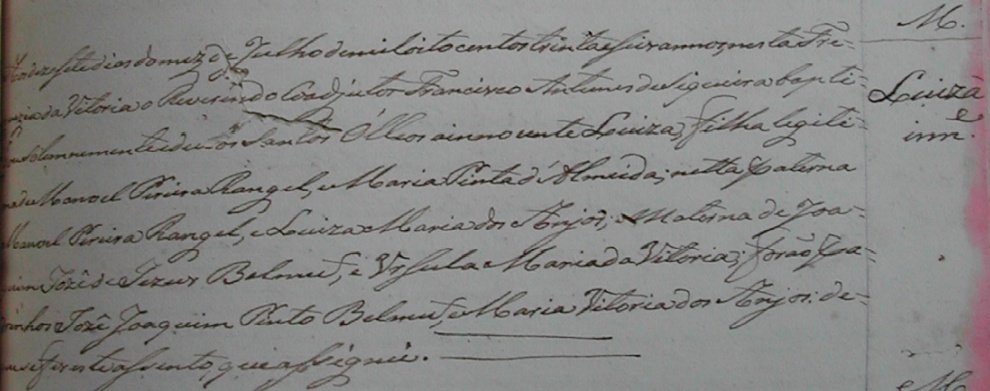 M.
dezasete dias do mez de Julho de mil oito centos trinta e seis annos, nesta Fre-
da Vitoria o Reverendo Coadjutor Francisco Antunes de Siqueira bapti-
Solemnemente e deu os Santos Olleos a innocente Luiza, filha legiti-
Luiza
inn.e
Manoel Pireira Rangel, e Maria Pinta d'Almeida; netta paterna
Manoel Pireira Rangel, e Luiza Maria dos Anjos; e Materna de Joa-
Jozé de Jezus Belmu, e Ursula Maria da Vitoria; forão Pa-
Jozé Joaquim Pinto Belmu, e Maria Vitoria dos Anjos: de-
fis este assento que assignei.